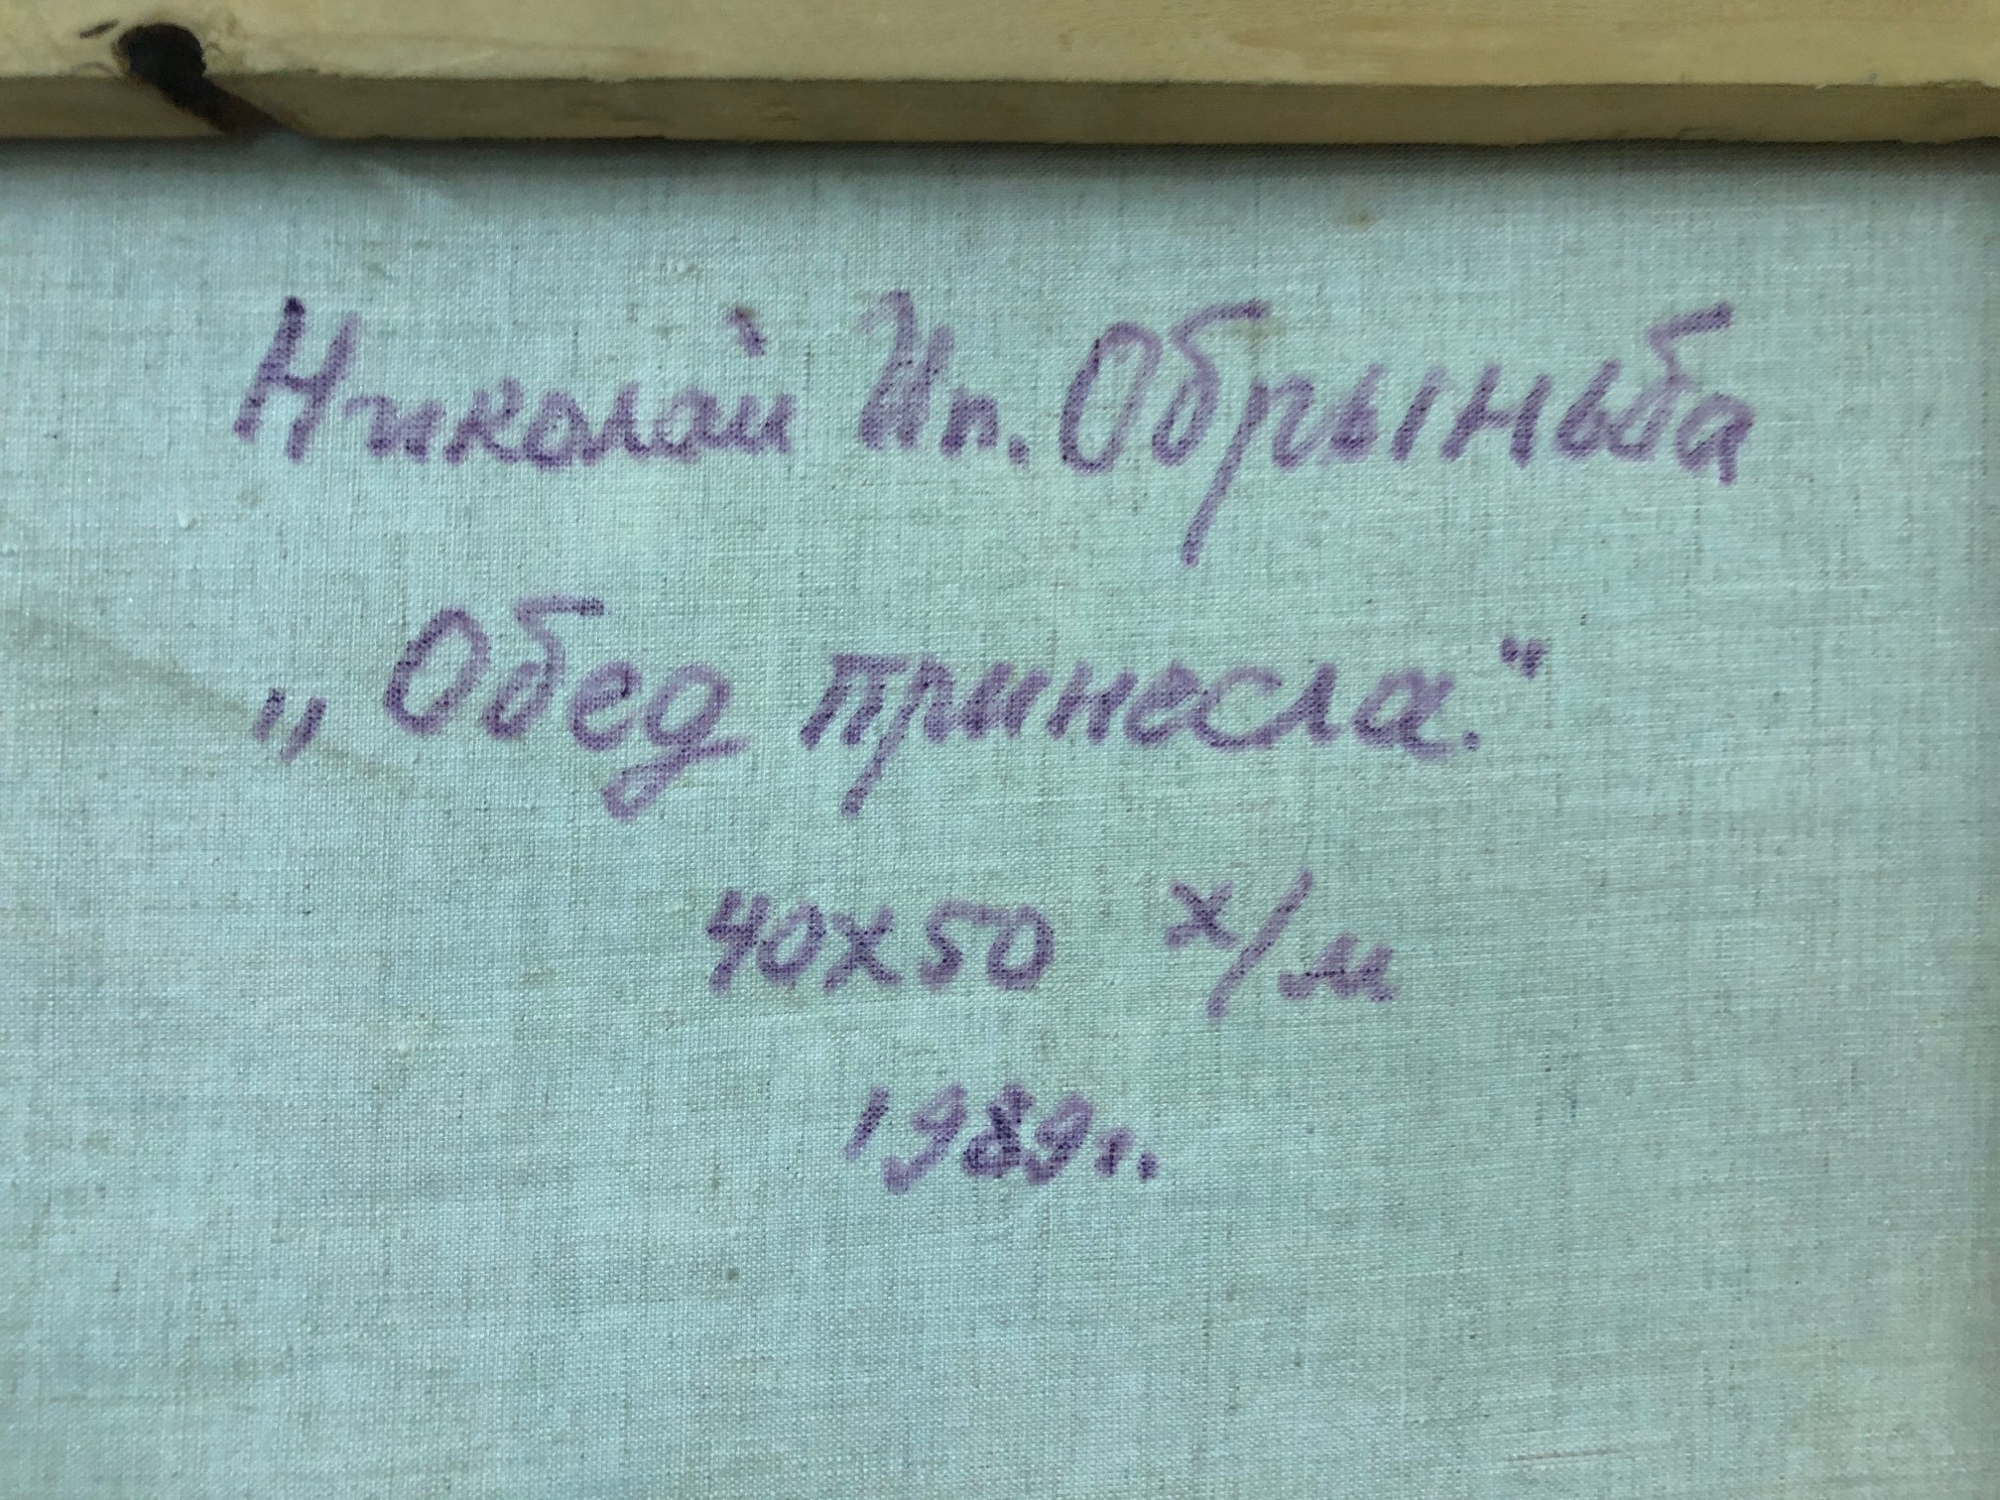 Николай Ип. Обрыньба
„Обед принесла."
40х50 х/м
1989г.